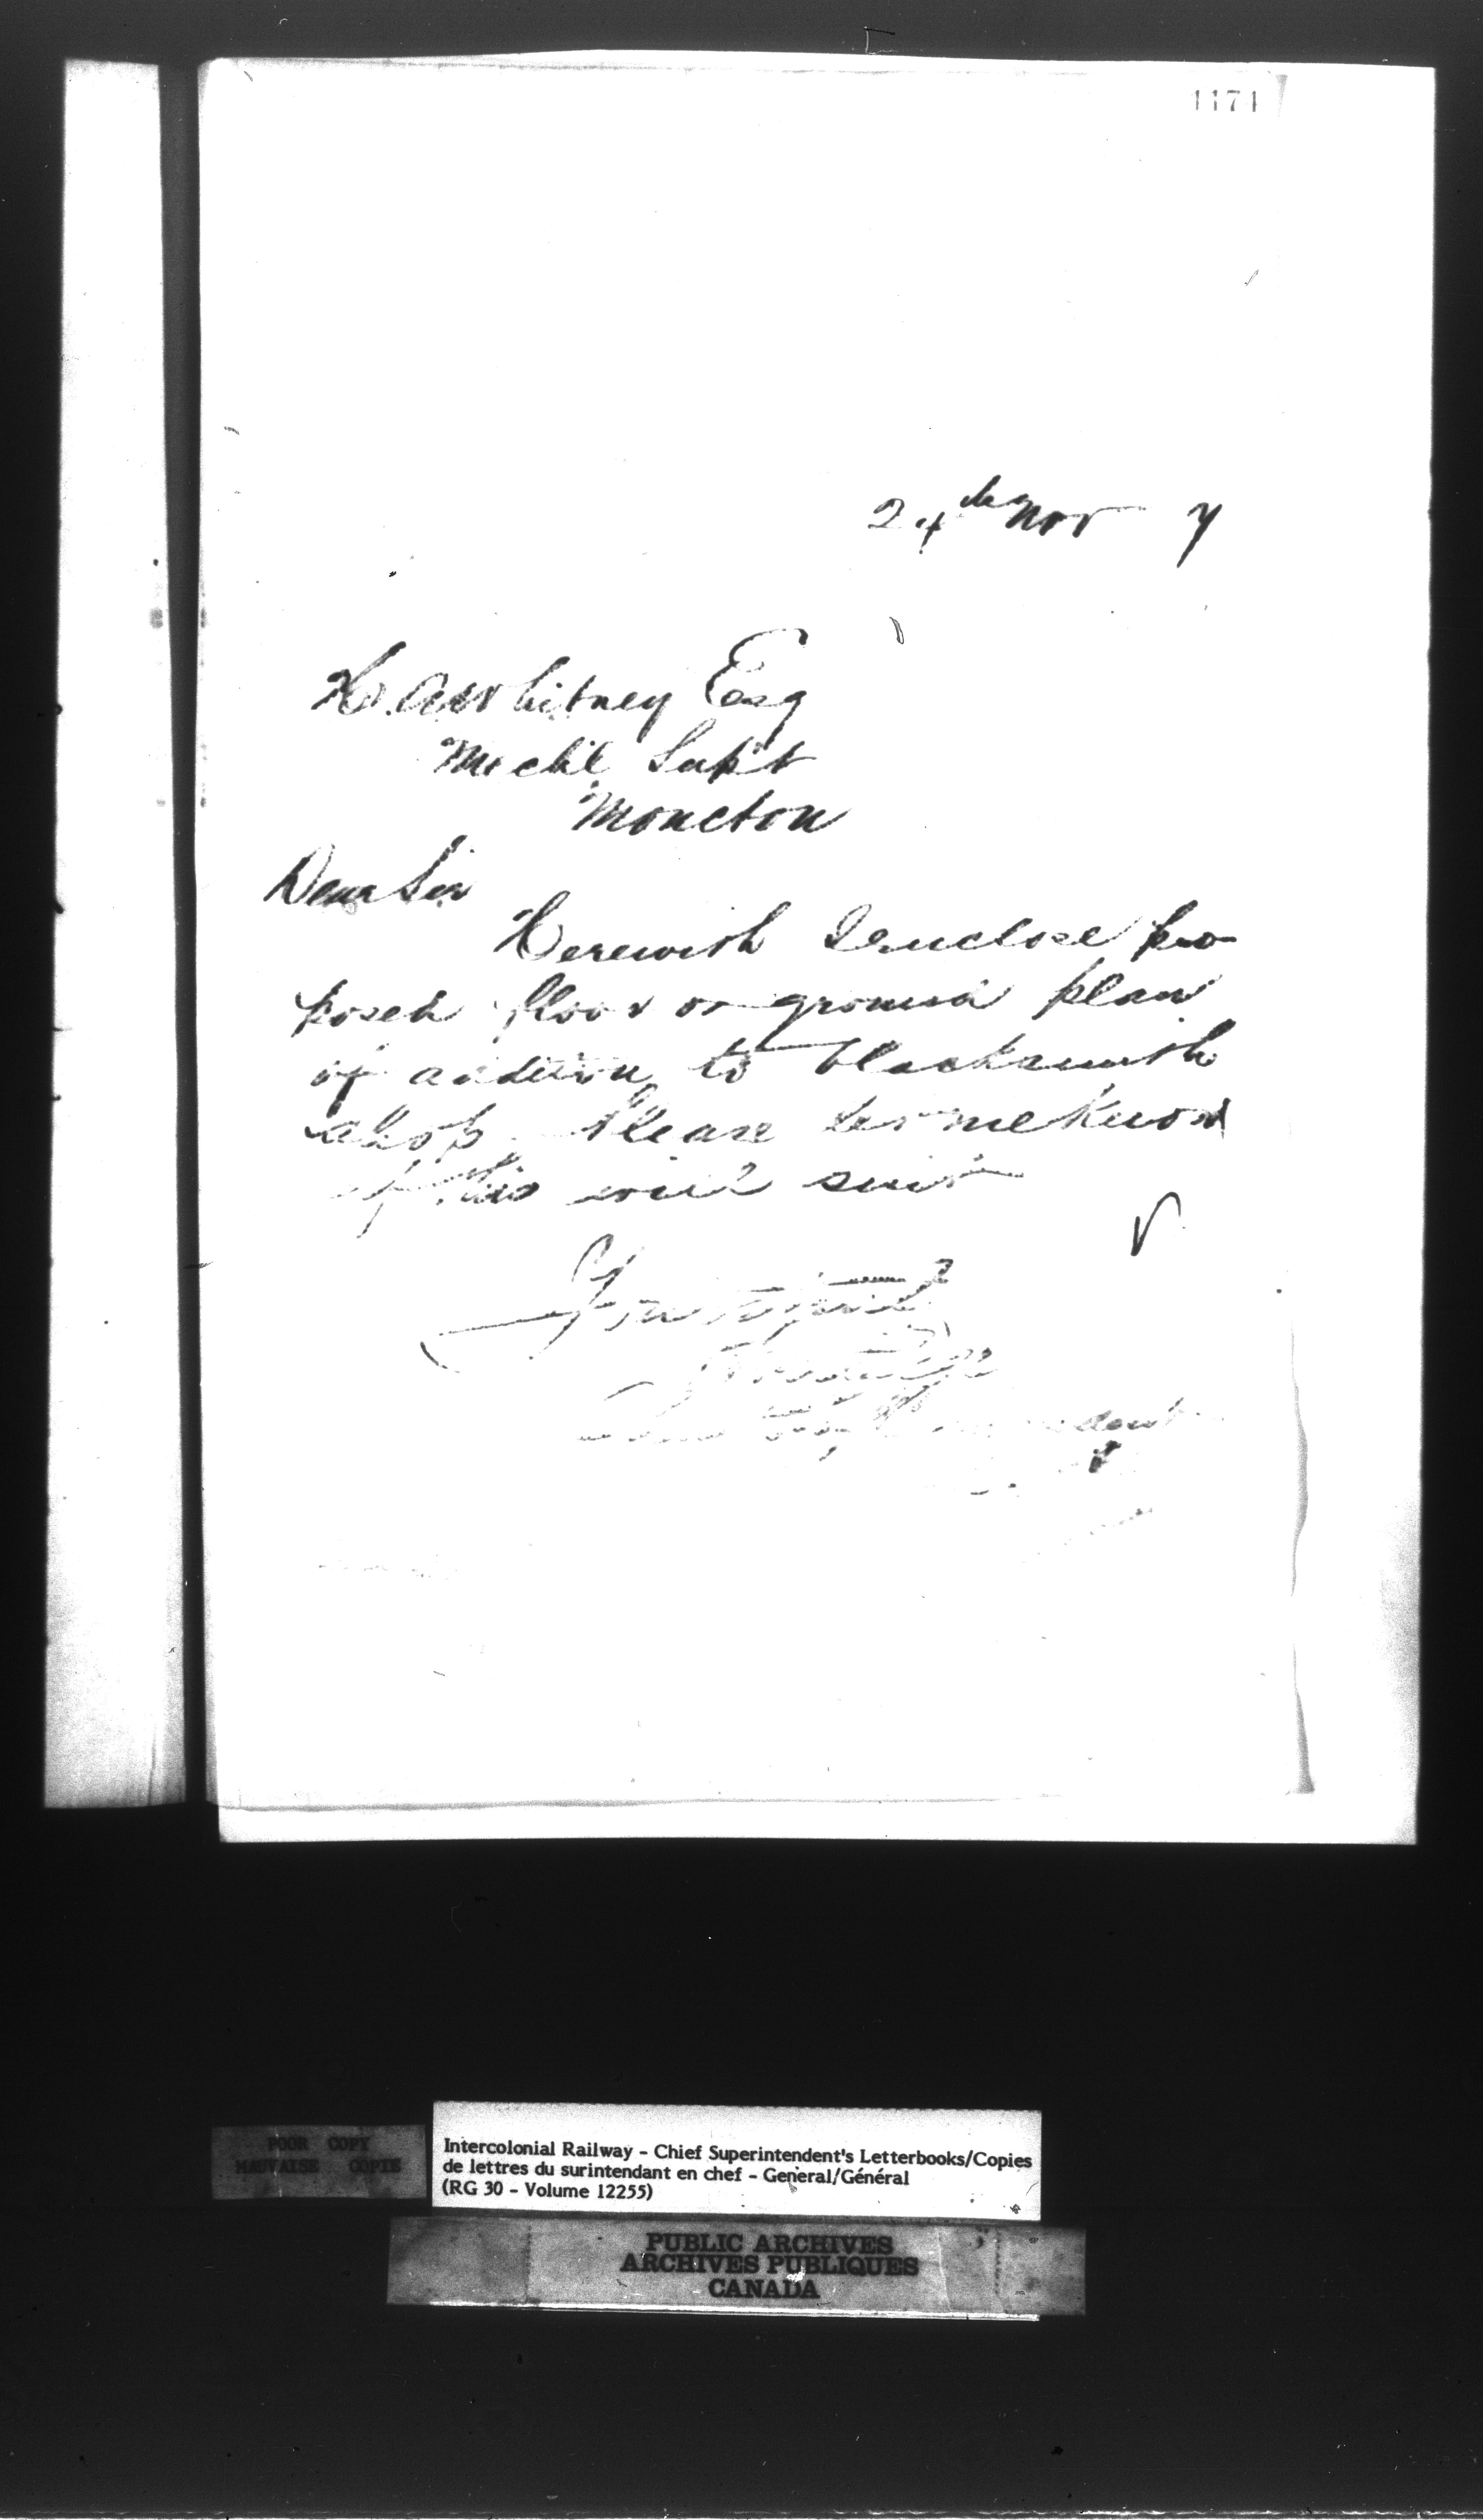 1171
24th Nov 7
H. A. Whitney Esq
Mechl Supt
Moncton
Dear Sir
Herewith I enclose pro-
posed floor or ground plan
of addition to blacksmith
shop. Please let me know
if this will suit
Yours
POOR COPY
MAUVAISE COPIE
Intercolonial Railway - Chief Superintendent's Letterbooks/Copies
de lettres du surintendant en chef - General/Général
(RG 30 - Volume 12255)
PUBLIC ARCHIVES
ARCHIVES PUBLIQUES
CANADA